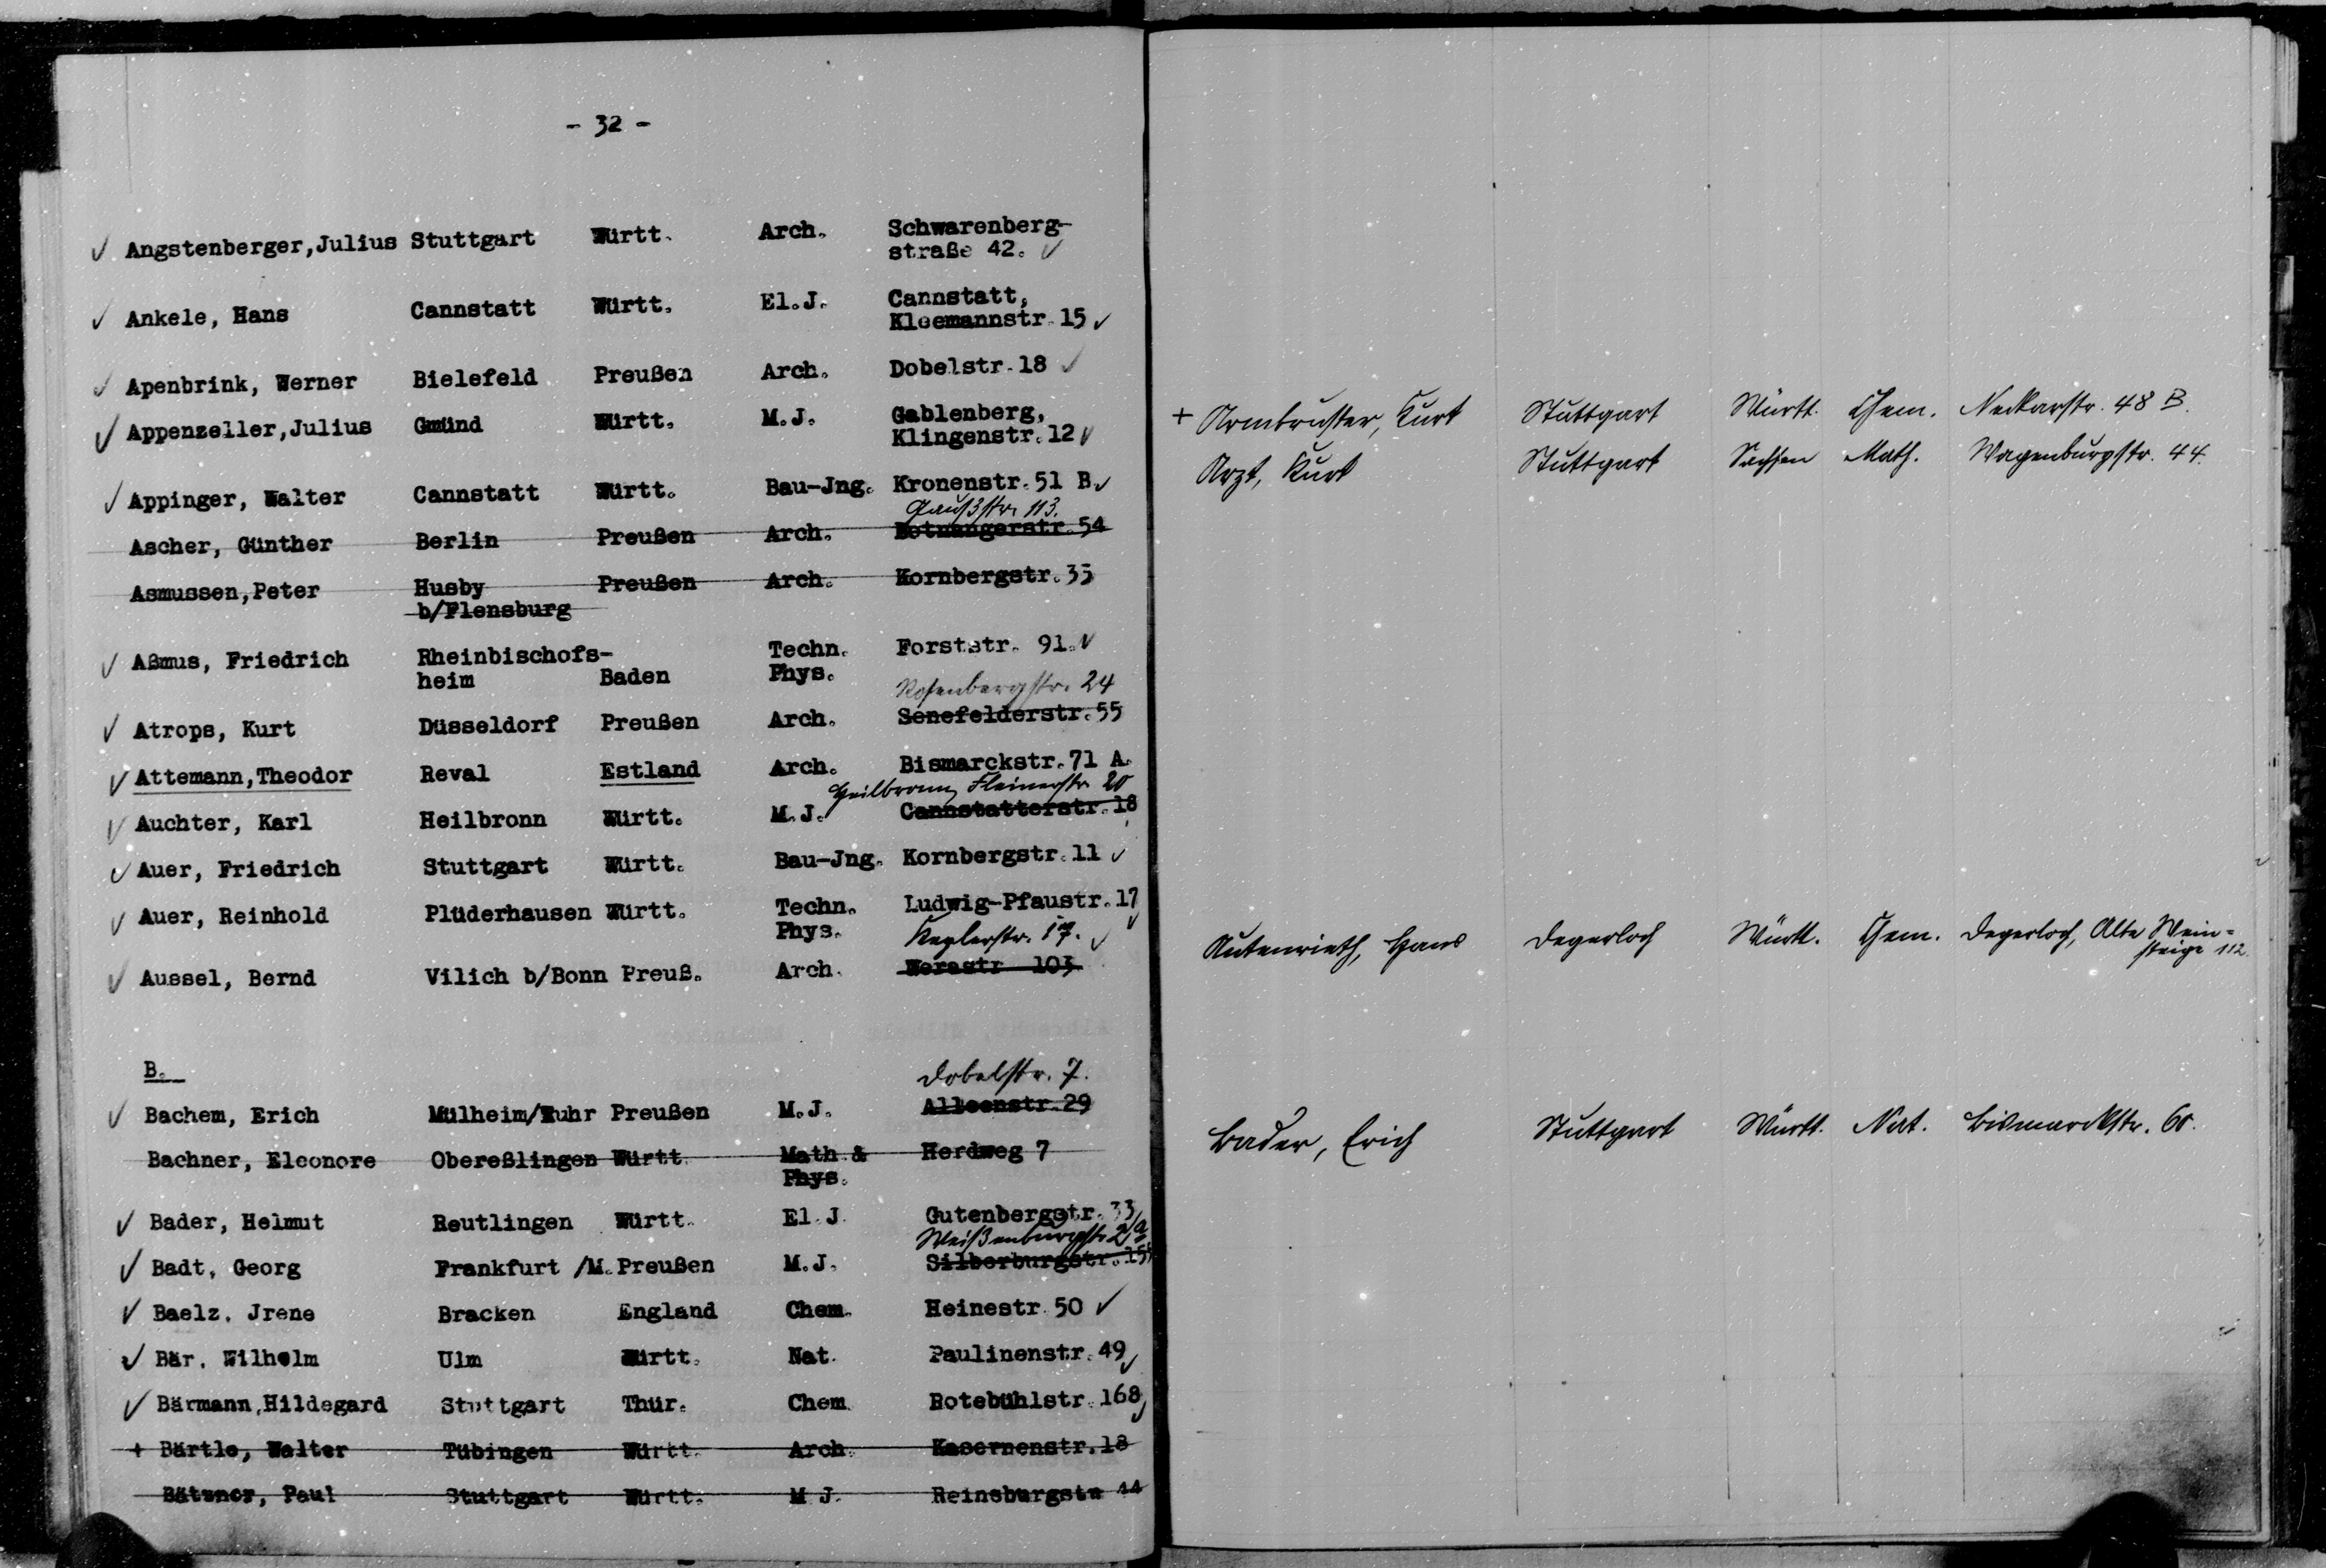 - 32 -
✓ Angstenberger,Julius Stuttgart Württ. Arch. Schwarenberg-
straße 42. ✓
✓ Ankele, Hans Cannstatt Württ. El.J. Cannstatt,
Kleemannstr.15 ✓
✓ Apenbrink, Werner Bielefeld Preußen Arch. Dobelstr.18 ✓
✓ Appenzeller,Julius Gmünd Württ. M.J. Gablenberg,
Klingenstr.12 ✓
✓ Appinger, Walter Cannstatt Württ. Bau-Jng. Kronenstr.51 B. ✓
Gaußstr. 113.
Ascher, Günther Berlin Preußen Arch. Botnangerstr.54
Asmussen,Peter Husby Preußen Arch. Kornbergstr.35
b/Flensburg
✓ Aßmus, Friedrich Rheinbischofs- Techn. Forststr. 91. ✓
heim Baden Phys.
Rosenbergstr. 24
✓ Atrops, Kurt Düsseldorf Preußen Arch. Senefelderstr.55
✓ Attemann,Theodor Reval Estland Arch. Bismarckstr.71 A.
Heilbronn, Fleinerstr. 20
✓ Auchter, Karl Heilbronn Württ. M.J. Cannstatterstr.18
✓ Auer, Friedrich Stuttgart Württ. Bau-Jng. Kornbergstr.11 ✓
✓ Auer, Reinhold Plüderhausen Württ. Techn. Ludwig-Pfaustr.17 ✓
Phys. Keplerstr. 17. ✓
✓ Aussel, Bernd Vilich b/Bonn Preuß. Arch. Werastr 103
B.
Dobelstr. 7.
✓ Bachem, Erich Mülheim/Ruhr Preußen M.J. Alleenstr.29
Bachner, Eleonore Obereßlingen Württ. Math.& Herdweg 7
Phys.
✓ Bader, Helmut Reutlingen Württ. El.J. Gutenbergstr.33
Weißenburgstr. 2a
✓ Badt, Georg Frankfurt /M. Preußen M.J. Silberburgstr.155
✓ Baelz, Jrene Bracken England Chem. Heinestr.50 ✓
✓ Bär, Wilhelm Ulm Württ. Nat. Paulinenstr.49 ✓
✓ Bärmann,Hildegard Stuttgart Thür. Chem. Rotebühlstr.168 ✓
+ Bärtle, Walter Tübingen Württ. Arch. Kasernenstr.18
Bätzner, Paul Stuttgart Württ. M J. Reinsburgstr 44
+ Armbruster, Kurt Stuttgart Württ. Chem. Neckarstr. 48 B.
Arzt, Kurt Stuttgart Sachsen Math. Wagenburgstr. 44.
Autenrieth, Hans Degerloch Württ. Chem. Degerloch, Alte Wein-
steige 112.
Bader, Erich Stuttgart Württ. Nat. Bismarckstr. 60.